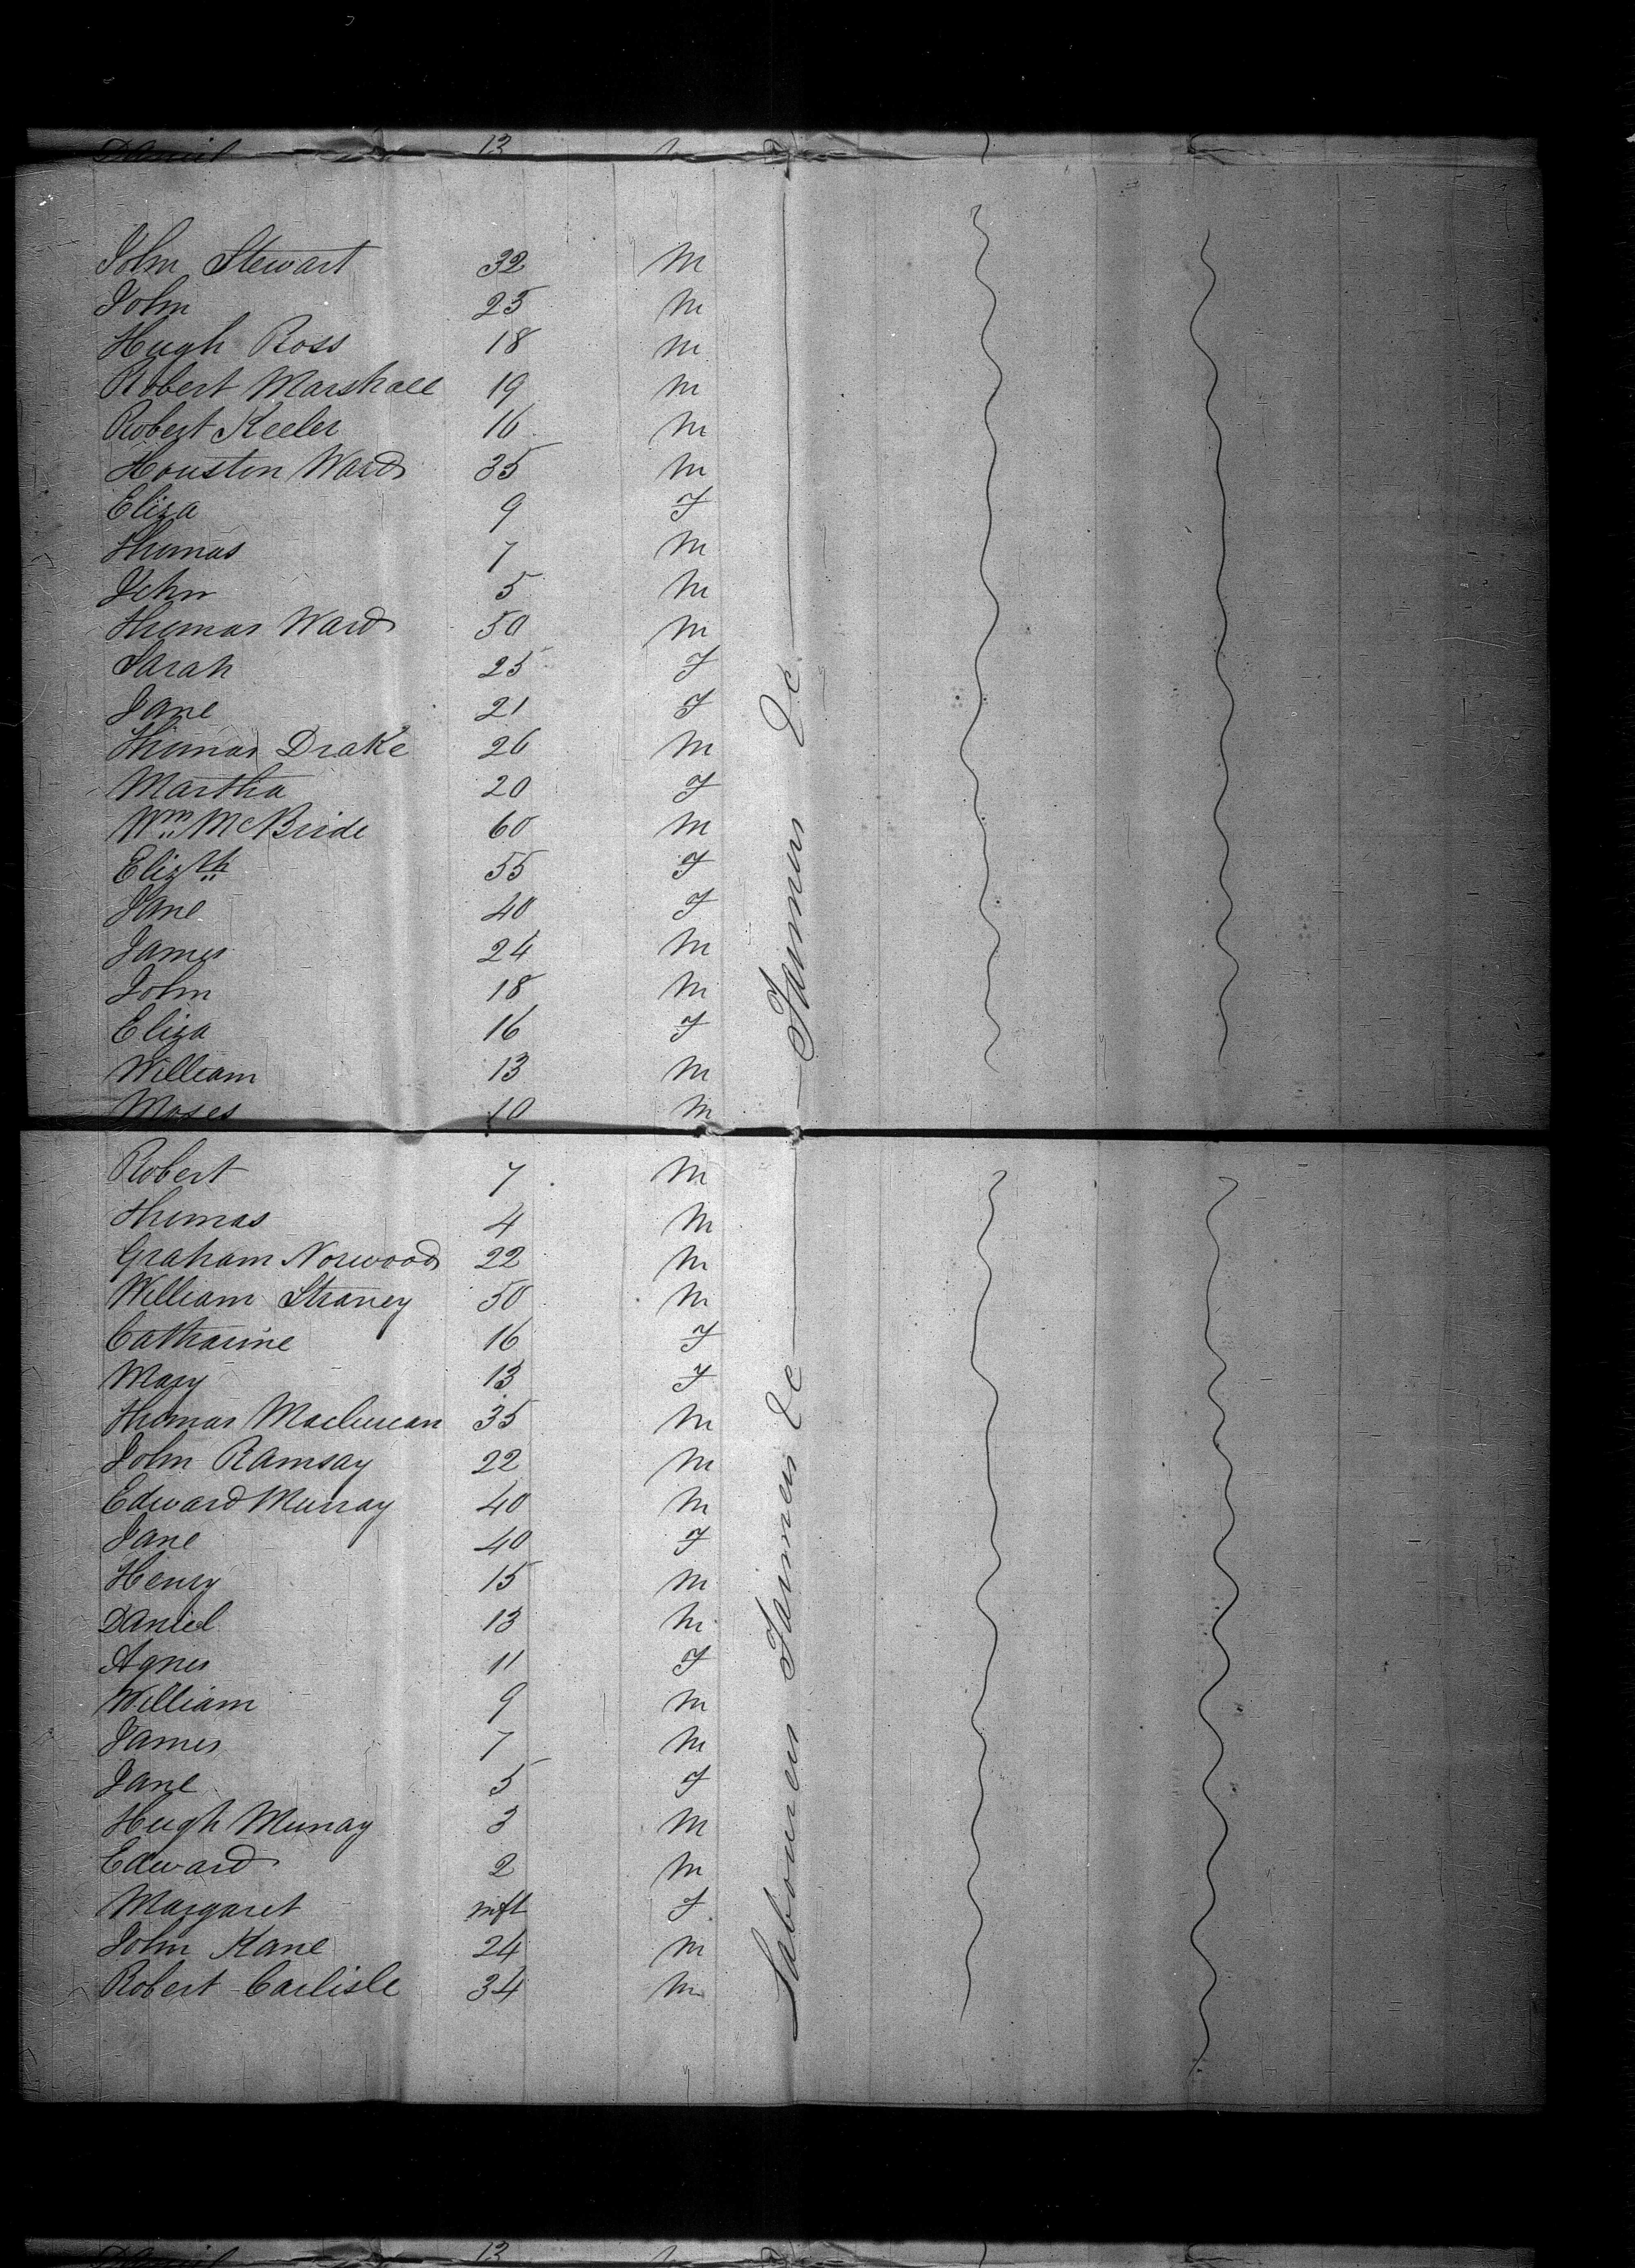 Daniel 13
John Stewart 32 M
John 25 M
Hugh Ross 18 M
Robert Marshall 19 M
Robert Keeler 16 M
Houston Ward 35 M
Eliza 9 F
Thomas 7 M
John 5 M
Thomas Ward 50 M
Sarah 25 F
Jane 21 F
Thomas Drake 26 M
Martha 20 F
Wm McBride 60 M
Elizth 55 F
Jane 40 F
James 24 M
John 18 M
Eliza 16 F
William 13 M
Moses 10 M
Farmers &c
Robert 7 M
Thomas 4 M
Graham Norwood 22 M
William Straney 50 M
Catharine 16 F
Mary 13 F
Thomas 35 M
John Ramsay 22 M
Edward Murray 40 M
Jane 40 F
Henry 15 M
Daniel 13 M
Agnes 11 F
William 9 M
James 7 M
Jane 5 F
Hugh Murray 3 M
Edward 2 M
Margaret inft F
John Kane 24 M
Robert Carlisle 34 M
Labourers Farmers &c
Daniel 13